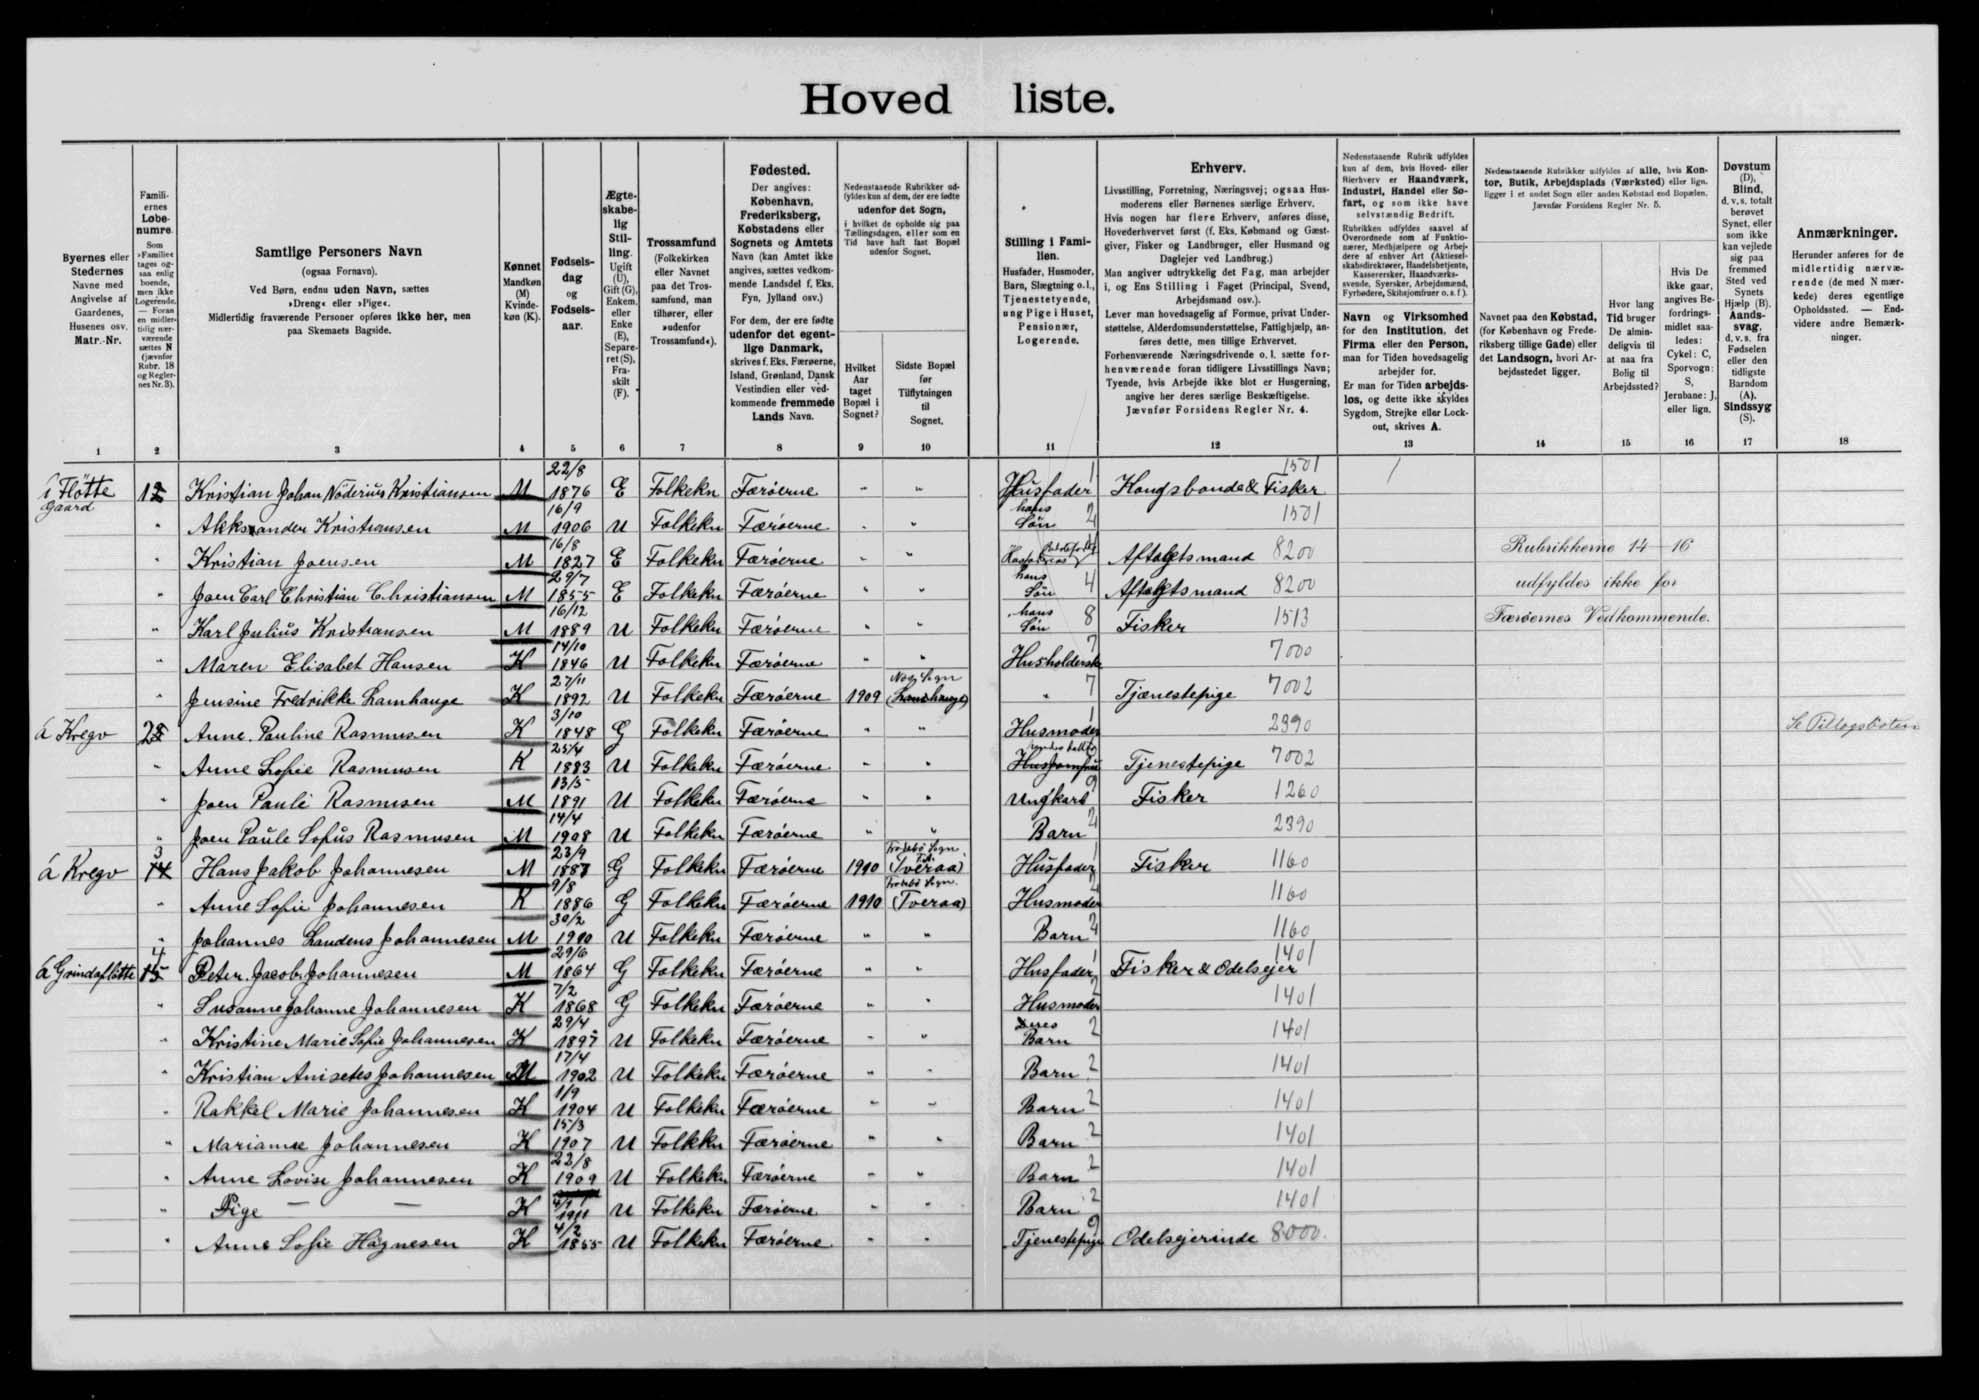 Hoved liste.
Byernes eller Stedernes Navne med Angivelse af Gaardenes, Husenes osv. Matr.-Nr.
Famili- ernes Løbe- numre.
Som »Familie« tages og- saa enlig boende, men ikke Logerende. — Foran en midler- tidig nær- værende sættes N (jævnfør Rubr. 18 og Regler- nes Nr. 3).
Samtlige Personers Navn
(ogsaa Fornavn).
Ved Børn, endnu uden Navn, sættes
»Dreng« eller »Pige«.
Midlertidig fraværende Personer opføres ikke her, men
paa Skemaets Bagside.
Kønnet Mandkøn (M) Kvinde- køn (K).
Fødsels- dag og Fødsels- aar.
Ægte- skabe- lig Stil- ling. Ugift (U), Gift (G), Enkem. eller Enke (E), Separe- ret (S), Fra- skilt (F).
Trossamfund
(Folkekirken eller Navnet paa det Tros- samfund, man tilhører, eller »udenfor Trossamfund«).
Fødested.
Der angives: København, Frederiksberg, Købstadens eller Sognets og Amtets Navn (kan Amtet ikke angives, sættes vedkom- mende Landsdel f. Eks. Fyn, Jylland osv.)
For dem, der ere fødte udenfor det egent- lige Danmark, skrives f. Eks. Færøerne, Island, Grønland, Dansk Vestindien eller ved- kommende fremmede Lands Navn.
Nedenstaaende Rubrikker ud- fyldes kun af dem, der ere fødte udenfor det Sogn, i hvilket de opholde sig paa Tællingsdagen, eller som en Tid have haft fast Bopæl udenfor Sognet.
Hvilket Aar taget Bopæl i Sognet?
Sidste Bopæl før Tilflytningen til Sognet.
Stilling i Fami- lien.
Husfader, Husmoder, Barn, Slægtning o. l., Tjenestetyende, ung Pige i Huset, Pensionær, Logerende.
Erhverv.
Livsstilling, Forretning, Næringsvej; ogsaa Hus- moderens eller Børnenes særlige Erhverv.
Hvis nogen har flere Erhverv, anføres disse, Hovederhvervet først (f. Eks. Købmand og Gæst- giver, Fisker og Landbruger, eller Husmand og Daglejer ved Landbrug.)
Man angiver udtrykkelig det Fag, man arbejder i, og Ens Stilling i Faget (Principal, Svend, Arbejdsmand osv.).
Lever man hovedsagelig af Formue, privat Under- støttelse, Alderdomsunderstøttelse, Fattighjælp, an- føres dette, men tillige Erhvervet.
Forhenværende Næringsdrivende o. l. sætte for- henværende foran tidligere Livsstillings Navn; Tyende, hvis Arbejde ikke blot er Husgerning, angive her deres særlige Beskæftigelse.
Jævnfør Forsidens Regler Nr. 4.
Nedenstaaende Rubrik udfyldes kun af dem, hvis Hoved- eller Bierhverv er Haandværk, Industri, Handel eller Sø- fart, og som ikke have selvstændig Bedrift.
Rubrikken udfyldes saavel af Overordnede som af Funktio- nærer, Medhjælpere og Arbej- dere af enhver Art (Aktiesel- skabsdirektører, Handelsbetjente, Kasserersker, Haandværks- svende, Syersker, Arbejdsmænd, Fyrbødere, Skibsjomfruer o. s. f.).
Navn og Virksomhed for den Institution, det Firma eller den Person, man for Tiden hovedsagelig arbejder for.
Er man for Tiden arbejds- løs, og dette ikke skyldes Sygdom, Strejke eller Lock- out, skrives A.
Nedenstaaende Rubrikker udfyldes af alle, hvis Kon- tor, Butik, Arbejdsplads (Værksted) eller lign. ligger i et andet Sogn eller anden Købstad end Bopælen.
Jævnfør Forsidens Regler Nr. 5.
Navnet paa den Købstad, (for København og Frede- riksberg tillige Gade) eller det Landsogn, hvori Ar- bejdsstedet ligger.
Hvor lang Tid bruger De almin- deligvis til at naa fra Bolig til Arbejdssted?
Hvis De ikke gaar, angives Be- fordrings- midlet saa- ledes: Cykel: C, Sporvogn: S, Jernbane: J, eller lign.
Døvstum (D), Blind, d. v. s. totalt berøvet Synet, eller som ikke kan vejlede sig paa fremmed Sted ved Synets Hjælp (B). Aands- svag, d. v. s. fra Fødselen eller den tidligste Barndom (A). Sindssyg (S).
Anmærkninger.
Herunder anføres for de midlertidig nærvæ- rende (de med N mær- kede) deres egentlige Opholdssted. — End- videre andre Bemærk- ninger.
1 2 3 4 5 6 7 8 9 10 11 12 13 14 15 16 17 18
í Flötte Gaard Kristian Johan Nöderius Kristiansen M 22/8 1876 E Folkekn Færöerne " " Husfader 1 Kongsbonde & Fisker 1501
" Aleksander Kristiansen M 16/9 1906 U Folkekn Færöerne " " hans Sön 2 1501
" Kristian Joensen M 16/8 1827 E Folkekn Færöerne " " Aftægtsmand 8200 Rubrikkerne 14-16
" Joen Carl Christian Christiansen M 29/7 1855 E Folkekn Færöerne " " hans Sön 4 Aftægtsmand 8200 udfyldes ikke for
" Karl Julius Kristiansen M 16/12 1889 U Folkekn Færöerne " " hans Sön 8 Fisker 1513 Færøernes Vedkommende.
" Maren Elisabet Hansen K 14/10 1846 U Folkekn Færöerne " " Husholderske 7 7000
" Jensine Fredrikke Lamhauge K 27/11 1892 U Folkekn Færöerne 1909 Næs Sogn (Lamhauge) " 7 Tjænestepige 7002
á Kregv Anne Pauline Rasmusen K 3/10 1848 G Folkekn Færöerne " " Husmoder 1 2390 Se Tillægslisten
" Anne Sofie Rasmusen K 25/4 1883 U Folkekn Færöerne " " Tjenestepige 7002
" Joen Pauli Rasmusen M 13/5 1891 U Folkekn Færöerne " " Ungkarl 9 Fisker 1260
" Joen Paule Sofus Rasmusen M 14/4 1908 U Folkekn Færöerne " " Barn 2 2390
á Kregv 3 14 Hans Jakob Johannesen M 23/9 1887 G Folkekn Færöerne 1910 Frodebö Sogn (Tveraa) Husfader 1 Fisker 1160
" Anne Sofie Johannesen K 9/8 1886 G Folkekn Færöerne 1910 Frodebö Sogn (Tveraa) Husmoder 2 1160
" Johannes Laudens Johannesen M 30/2 1910 U Folkekn Færöerne " " Barn 2 1160
á Grindaflötte 4 15 Peter Jacob Johannesen M 29/6 1864 G Folkekn Færöerne " " Husfader 1 Fisker & Odelsejer 1401
" Susanne Johanne Johannesen K 7/2 1868 G Folkekn Færöerne " " Husmoder 2 1401
" Kristine Marie Sofie Johannesen K 29/4 1897 U Folkekn Færöerne " " Barn 2 1401
" Kristian Anisetes Johannesen M 17/4 1902 U Folkekn Færöerne " " Barn 2 1401
" Rakkel Marie Johannesen K 1/9 1904 U Folkekn Færöerne " " Barn 2 1401
" Marianne Johannesen K 15/3 1907 U Folkekn Færöerne " " Barn 2 1401
" Anne Lovise Johannesen K 22/8 1909 U Folkekn Færöerne " " Barn 2 1401
" Pige — — K 1911 U Folkekn Færöerne " " Barn 2 1401
" Anne Sofie Högnesen K 4/2 1855 U Folkekn Færöerne " " Tjenestepige 9 Odelsejerinde 8000.